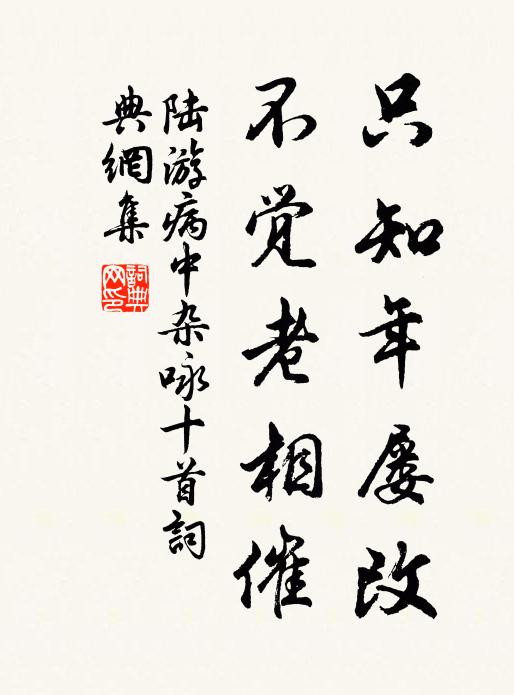 只知年屡改
不觉老相催
陆游病中杂咏十首詞
典網集
詞典
网印